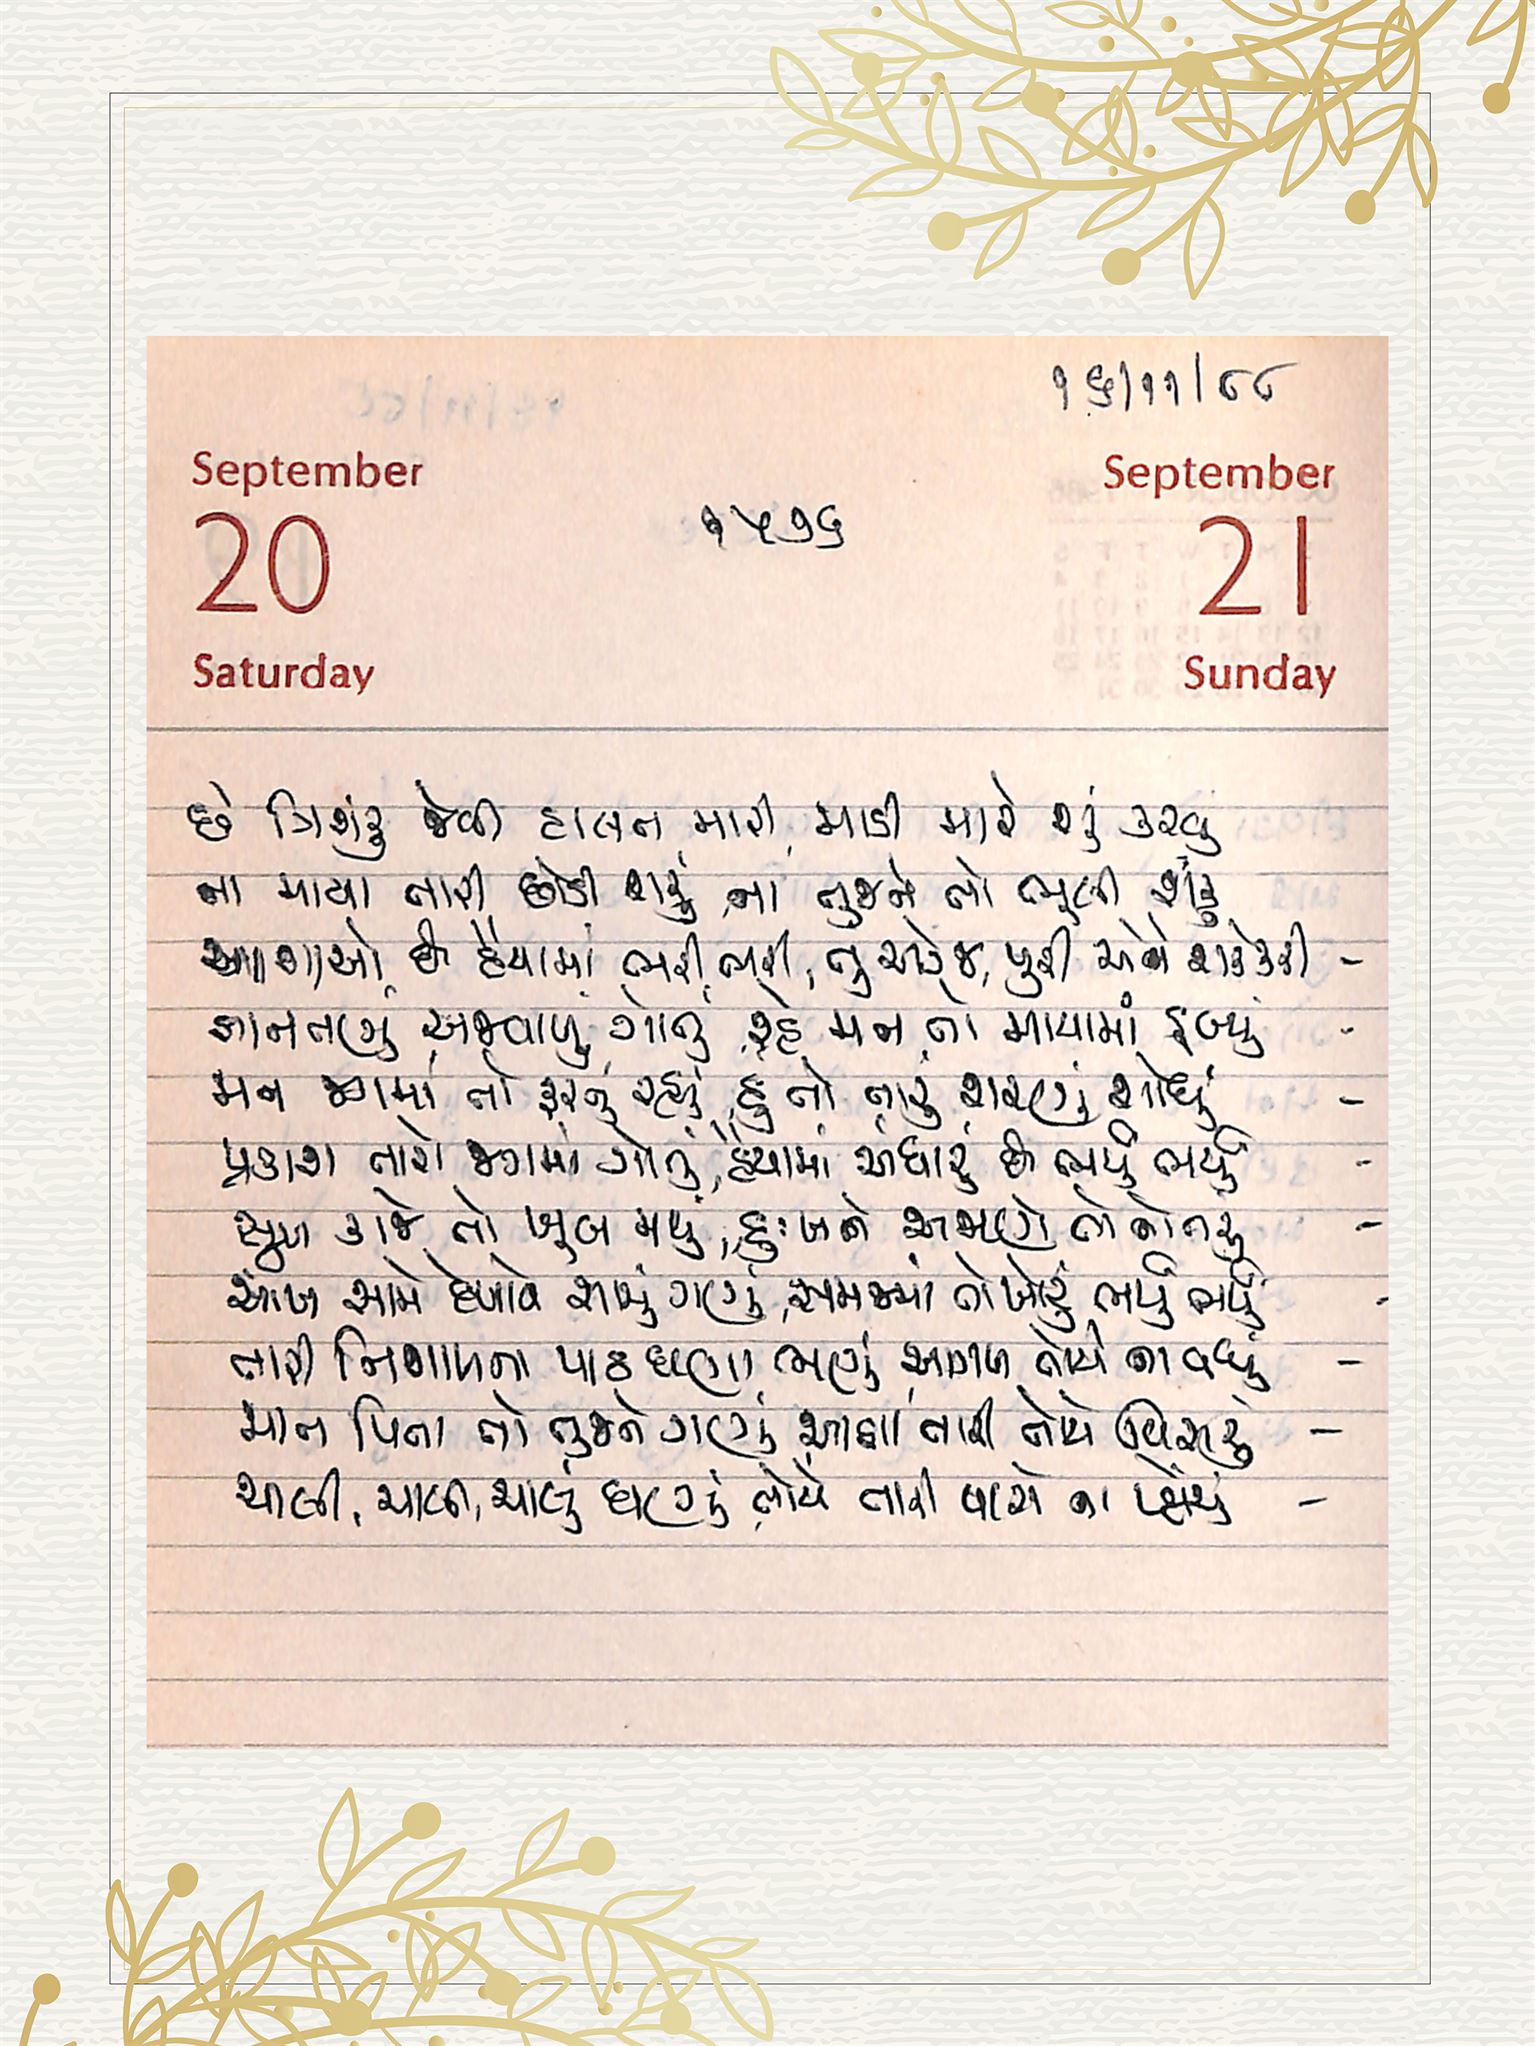 ૧૬/૧૧/૮૮
September
20
Saturday
૧૫૭૬
September
21
Sunday
છે ત્રિશંકુ જેવી હાલત મારી, માડી મારે શું કરવું
ના માયા તારી છોડી શકું, ના તુજને તો ભૂલી શકું
આશાઓ છે હૈયામાં ભરી ભરી, તુ એકજ, પુરી એને શકે કરી -
જ્ઞાનતણું અજવાળું ગોતું, રહે મન તો માયામાં ડૂબ્યું -
મન જગમાં તો ફરતું રહ્યું, હું તો તારું શરણું શોધું -
પ્રકાશ તારો જગમાં ગોતું, હૈયામાં અંધારું છે ભર્યું ભર્યું -
સુખ કાજે તો ખૂબ મથું, દુઃખને તો નોતરું -
આંખ સામે દેખાયે સાચું ઘણું, સમજમાં તો ખોટું ભર્યું ભર્યું -
તારી નિશાળના પાઠ ઘણા ભણું, આગળ તોયે ના વધું -
માત પિતા તો તુજને ગણું, આજ્ઞા તારી તોયે વિસરું -
ચાલી, ચાલી, ચાલું ઘણું, તોયે તારી પાસે ના પહોંચું -